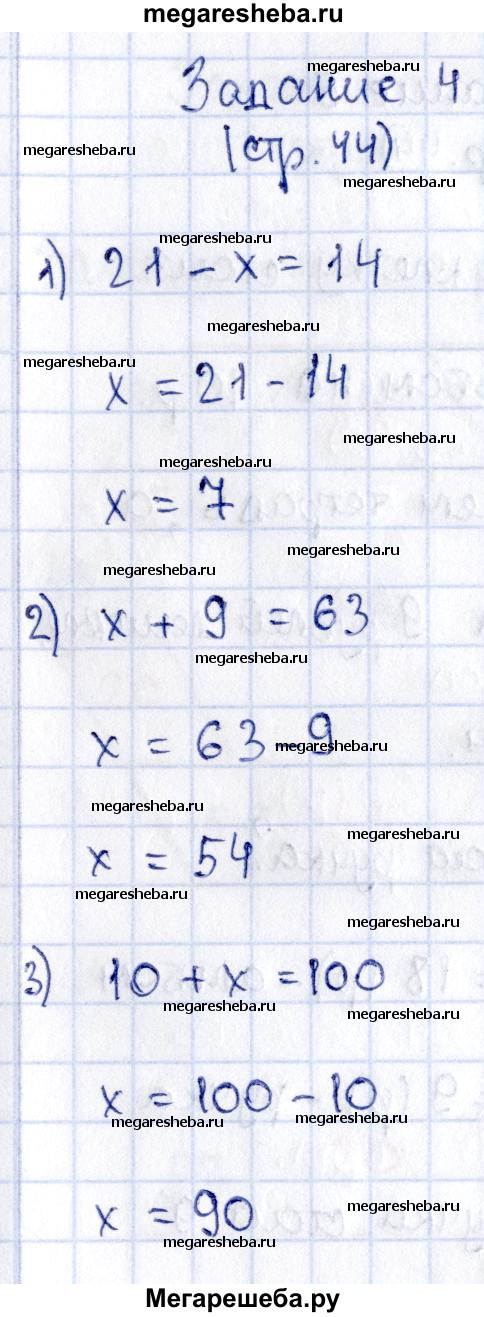 megaresheba.ru
megaresheba.ru
Задание 4
megaresheba.ru
(стр. 44)
megaresheba.ru
megaresheba.ru
1) 21 - x = 14
megaresheba.ru
megaresheba.ru
x = 21 - 14
megaresheba.ru
megaresheba.ru
x = 7
megaresheba.ru
megaresheba.ru
2) x + 9 = 63
megaresheba.ru
x = 63 - 9
megaresheba.ru
megaresheba.ru
megaresheba.ru
x = 54
megaresheba.ru
megaresheba.ru
3) 10 + x = 100
megaresheba.ru
megaresheba.ru
x = 100 - 10
megaresheba.ru
megaresheba.ru
x = 90
megaresheba.ru
megaresheba.ru
Мегарешеба.ру